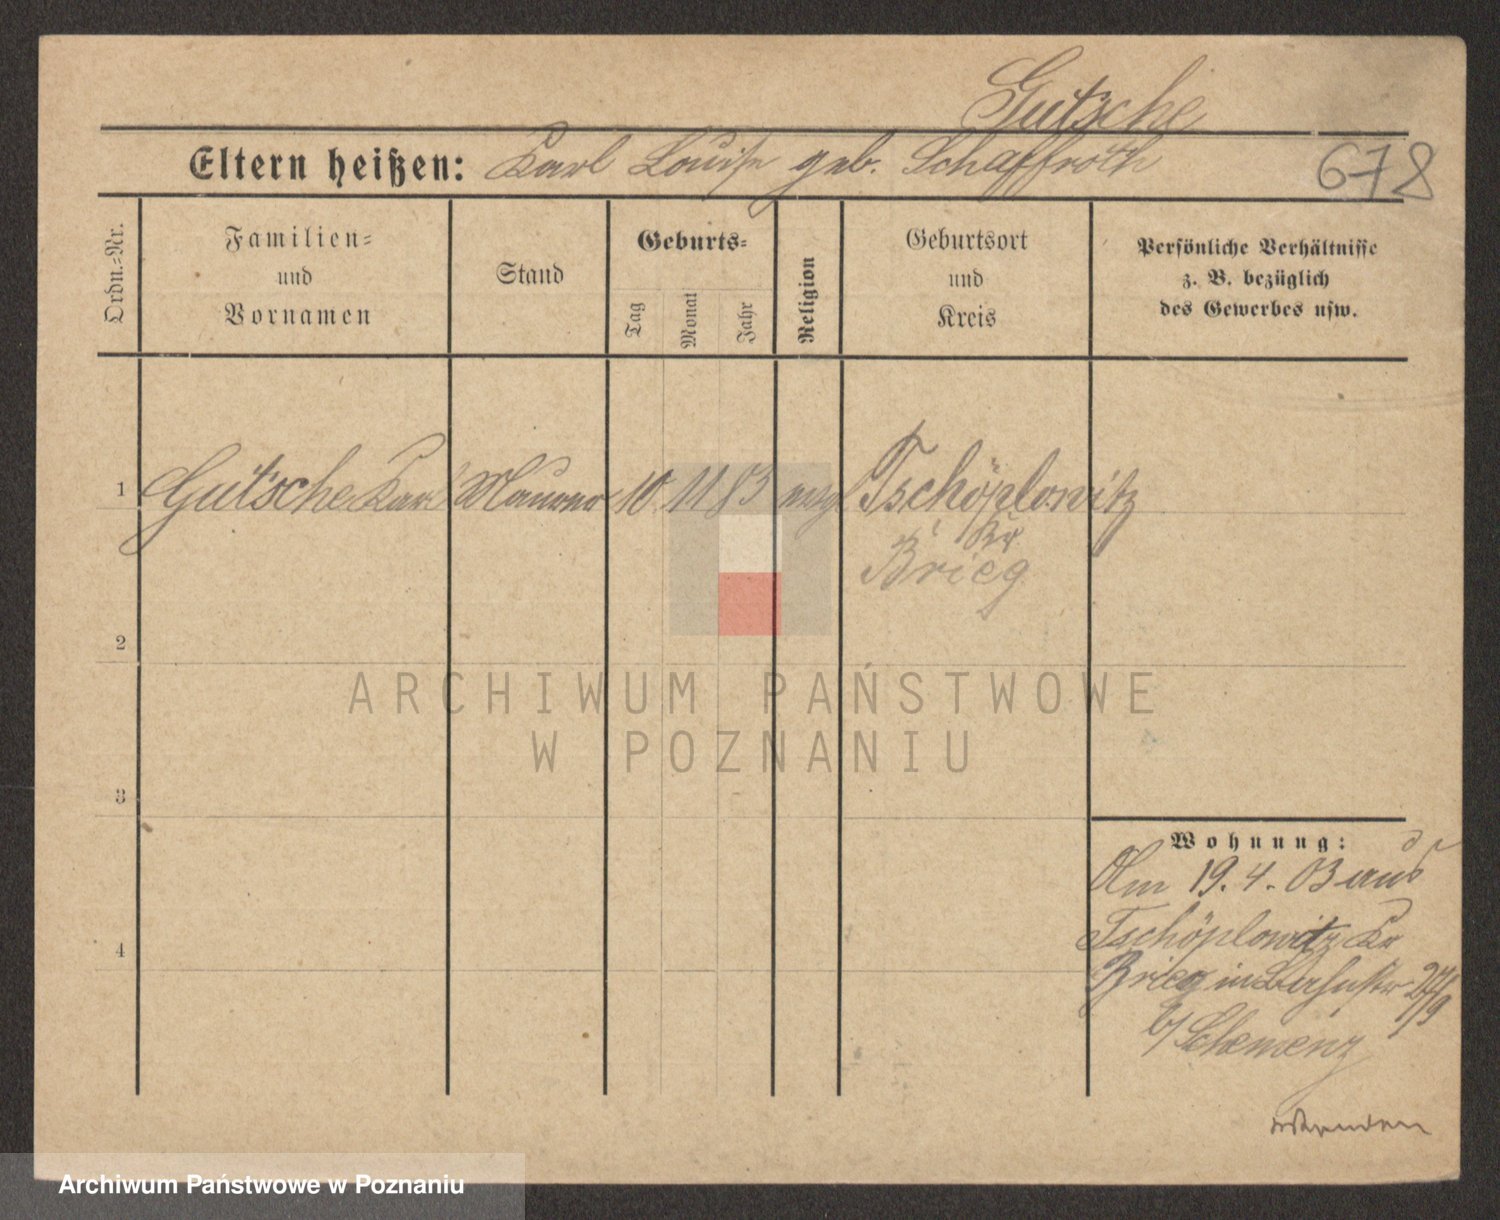 Gutsche
Eltern heißen: Karl Louise geb. Schaffroth
678
Ordn.-Nr.
Familien-
und
Vornamen
Stand
Geburts-
Tag
Monat
Jahr
Religion
Geburtsort
und
Kreis
Persönliche Verhältnisse
z. B. bezüglich
des Gewerbes usw.
1 Gutsche Karl Maurer 10 11 83 evgl Tschöplowitz
Kr
Brieg
2
3
4
ARCHIWUM PAŃSTWOWE
W POZNANIU
Wohnung:
Am 19. 4. 03 aus
Tschöplowitz Kr
Brieg in
b/ Schemenz
Archiwum Państwowe w Poznaniu